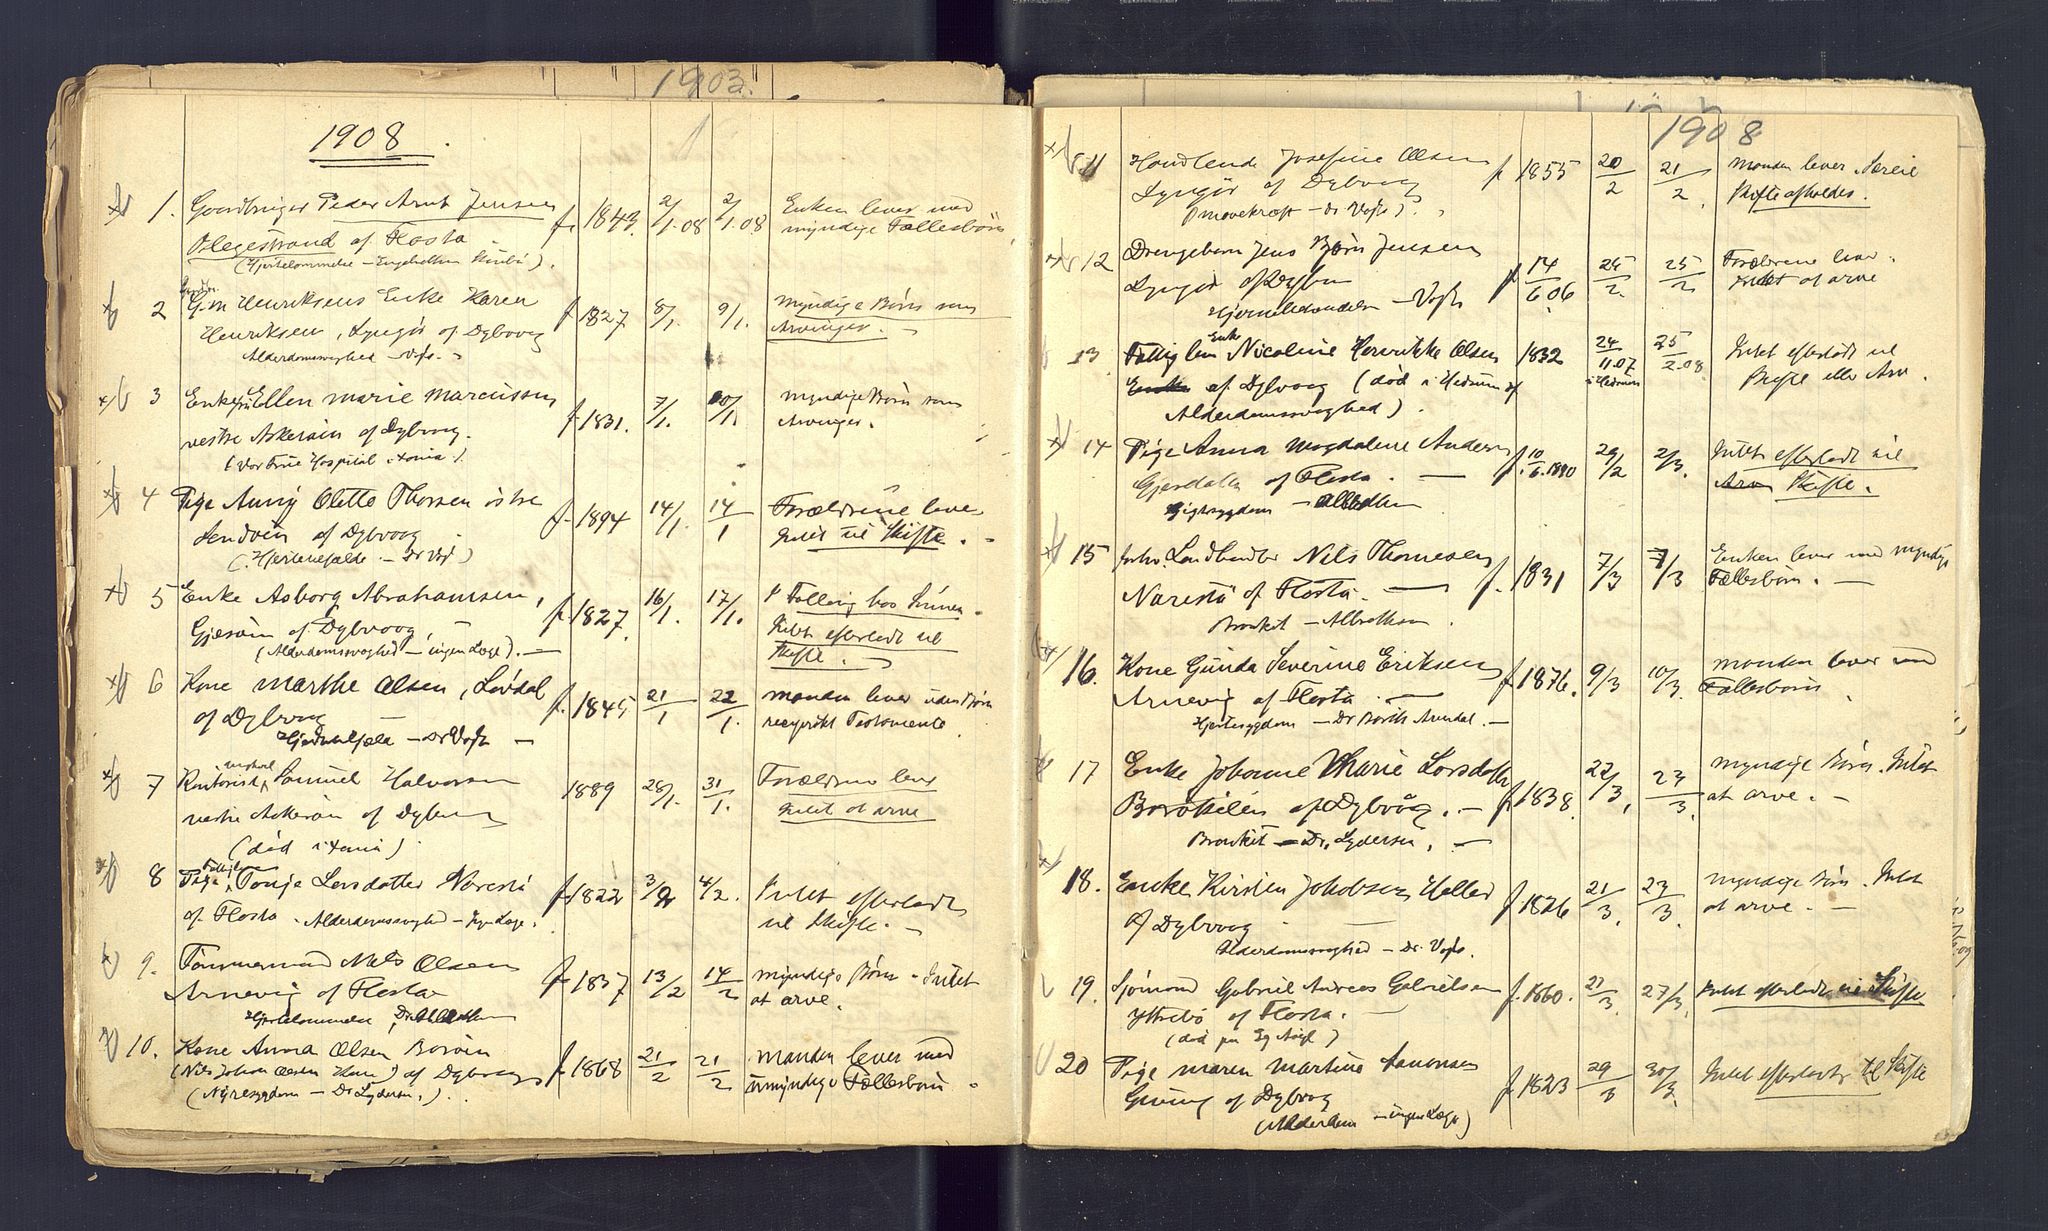 1903.
1908.
1. Gaardbruger Peder Arnt Jensen f. 1843. 2/1.08 2/1.08 Enken lever med
af Flosta myndige Fællesbørn,
(Hjertelammelse
2 Henriksens Enke Karen f 1827 8/1. 9/1. myndige Børn som
Henriksen, Lyngør af Dybvaag Arvinger.
Alderdomssvaghed - Vogt.
3 Enkefru Ellen Marie Marcussen f. 1831. 7/1. 20/1. myndige Børn som
vestre Askerøen af Dybvaag. Arvinger.
(Vor Frue Hospital, Xania.)
4 Pige Anny Olette Thorsen østre f. 1894 14/1. 14/1 Forældrene lever
Sandøen af Dybvaag Intet til Skifte.
(Hjertefeil - Dr Vogt)
5 Enke Asborg Abrahamsen, f. 1827. 16/1. 17/1. Fattig hos
Gjesøen af Dybvaag, Intet efterladt til
(Alderdomssvaghed - ingen Læge). Skifte.
6 Kone Marthe Olsen, f. 1845 21/1 22/1. Manden lever uden Børn
af Dybvaag reciprokt Testamente.
- Dr Vogt -
7 Kontorist, Samuel Halvorsen 1889 28/1. 31/1. Forældrene lever
vestre Askerøen af Dybvaag Intet at arve
(død i Xania)
8 Pige Tonje Larsdatter Narestø f. 1822 3/2 4/2. Intet efterladt
af Flosta. Alderdomssvaghed - Ingen Læge. til Skifte.
9. Tømmermand Niels Olsen f. 1837 13/2 14/2 myndige Børn - Intet
Arnevig af Flosta at arve.
Hjertelammelse, Dr Albrethsen
10. Kone Anna Olsen Borøen f. 1868 21/2 21/2 Manden lever med
(Nils Johan Olsens Kone) af Dybvaag umyndige Fællesbørn
(Nyresygdom - Dr Lydersen.).
1908
11 Handlende Josefine Olsen f 1855 20/2 21/2. Manden lever. Særeie
Lyngør af Dybvaag Skifte afholdes.
(Mavekræft - Dr Vogt).
12 Drengebarn Jens Bjørn Jensen f 14/6.06 25/2. 25/2 Forældrene lever.
Lyngør af Dybvaag Intet at arve
- Vogt
13 Fattiglem Enke Nicoline Henrikke Olsen 1832 24/11.07 25/2.08. Intet efterladt til
Enke af Dybvaag (død i Hedrum af i Hedrum Skifte eller Arv.
Alderdomssvaghed).
14 Pige Anna Magdalene Andersen f. 10/6.1890 29/2 2/3. Intet efterladt til
Gjerdalen af Flosta. - Arv Skifte.
Gigtsygdom - Albrethsen
15 Landhandler Nils Thomesen f. 1831 7/3 7/3 Enken lever med myndige
Narestø af Flosta. - Fællesbørn. -
Bronkit - Albrethsen.
16. Kone Gunda Severine Eriksen f 1876. 9/3 10/3. Manden lever med
Arnevig af Flosta. - Fællesbørn
Hjertesygdom - Dr Borth Arendal. -
17 Enke Johanne Marie Larsdatter f 1838. 22/3. 23/3. myndige Børn. Intet
Borøkilen af Dybvåg. - at arve. -
Bronkit - Dr. Lydersen. -
18. Enke Kirsten Jakobsen Hellen f 1826 21/3. 23/3. myndige Børn. Intet
af Dybvaag at arve. -
Alderdomssvaghed - Dr. Vogt.
19. Sjømand Gabriel Andreas Gabrielsen f. 1860. 21/3. 27/3. Intet efterladt til Skifte
Ytrebø af Flosta. -
20 Pige Maren Martine Aanonsen f. 1823 29/3 30/3. Intet efterladt til Skifte
Geving af Dybvaag
(Alderdom - ingen Læge)